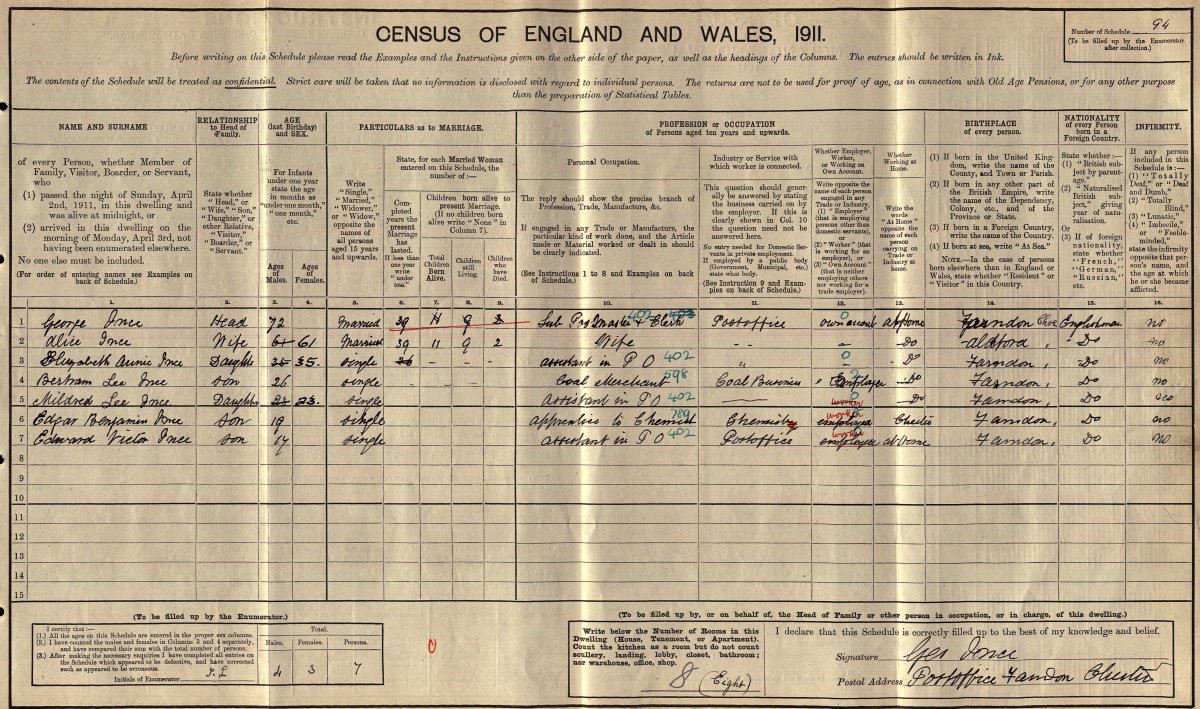 CENSUS OF ENGLAND AND WALES, 1911.
Number of Schedule 94
(To be filled up by the Enumerator after collection.)
Before writing on this Schedule please read the Examples and the Instructions given on the other side of the paper, as well as the headings of the Columns. The entries should be written in Ink.
The contents of the Schedule will be treated as confidential. Strict care will be taken that no information is disclosed with regard to individual persons. The returns are not to be used for proof of age, as in connection with Old Age Pensions, or for any other purpose
than the preparation of Statistical Tables.
NAME AND SURNAME
of every Person, whether Member of
Family, Visitor, Boarder, or Servant,
who
(1) passed the night of Sunday, April
2nd, 1911, in this dwelling and
was alive at midnight, or
(2) arrived in this dwelling on the
morning of Monday, April 3rd, not
having been enumerated elsewhere.
No one else must be included.
(For order of entering names see Examples on
back of Schedule.)
RELATIONSHIP
to Head of
Family.
State whether
"Head," or
"Wife," "Son,"
"Daughter," or
other Relative,
"Visitor,"
"Boarder," or
"Servant."
AGE
(last Birthday)
and SEX.
For Infants
under one year
state the age
in months as
"under one month,"
"one month,"
etc.
Ages of Males.
Ages of Females.
PARTICULARS as to MARRIAGE.
Write
"Single,"
"Married,"
"Widower,"
or "Widow,"
opposite the
names of
all persons
aged 15 years
and upwards.
State, for each Married Woman
entered on this Schedule, the
number of :—
Completed years the present Marriage has lasted.
If less than one year write "under one."
Children born alive to
present Marriage.
(If no children born
alive write "None" in
Column 7).
Total Children Born Alive.
Children still Living.
Children who have Died.
PROFESSION or OCCUPATION
of Persons aged ten years and upwards.
Personal Occupation.
The reply should show the precise branch of
Profession, Trade, Manufacture, &c.
If engaged in any Trade or Manufacture, the
particular kind of work done, and the Article
made or Material worked or dealt in should
be clearly indicated.
(See Instructions 1 to 8 and Examples on back
of Schedule.)
Industry or Service with
which worker is connected.
This question should gener-
ally be answered by stating
the business carried on by
the employer. If this is
clearly shown in Col. 10
the question need not be
answered here.
No entry needed for Domestic Ser-
vants in private employment.
If employed by a public body
(Government, Municipal, etc.)
state what body.
(See Instruction 9 and Exam-
ples on back of Schedule.)
Whether Employer,
Worker,
or Working on
Own Account.
Write opposite the
name of each person
engaged in any
Trade or Industry,
(1) "Employer"
(that is employing
persons other than
domestic servants),
or
(2) "Worker" (that
is working for an
employer), or
(3) "Own Account"
(that is neither
employing others
nor working for a
trade employer).
Whether
Working at
Home.
Write the
words
"At Home"
opposite the
name of each
person
carrying on
Trade or
Industry at
home.
BIRTHPLACE
of every person.
(1) If born in the United King-
dom, write the name of the
County, and Town or Parish.
(2) If born in any other part of
the British Empire, write
the name of the Dependency,
Colony, etc., and of the
Province or State.
(3) If born in a Foreign Country,
write the name of the Country.
(4) If born at sea, write "At Sea."
NOTE.—In the case of persons
born elsewhere than in England or
Wales, state whether "Resident" or
"Visitor" in this Country.
NATIONALITY
of every Person
born in a
Foreign Country.
State whether :—
(1) "British sub-
ject by parent-
age,"
(2) "Naturalised
British sub-
ject," giving
year of natu-
ralisation.
Or
(3) If of foreign
nationality,
state whether
"French,"
"German,"
"Russian,"
etc.
INFIRMITY.
If any person
included in this
Schedule is :—
(1) "Totally
Deaf," or "Deaf
and Dumb,"
(2) "Totally
Blind,"
(3) "Lunatic,"
(4) "Imbecile,"
or "Feeble-
minded,"
state the infirmity
opposite that per-
son's name, and
the age at which
he or she became
afflicted.
1. 2. 3. 4. 5. 6. 7. 8. 9. 10. 11. 12. 13. 14. 15. 16.
1 George Ince Head 72 Married 39 11 9 2 Sub Postmaster & Clerk 402 Postoffice 0 own account at home Farndon Ches Englishman no
2 Alice Ince Wife 61 61 Married 39 11 9 2 Wife - - Do Aldford, Do no
3 Elizabeth Annie Ince Daughter 35 35. single assistant in P O 402 " 0 Do Farndon, Do no
4 Bertram Lee Ince son 26 single Coal Merchant 598 Coal Business Employer Do Farndon, Do no
5 Mildred Lee Ince Daughter 23. single assistant in P O 402 0 worker Do Farndon, Do no
6 Edgar Benjamin Ince son 19 single apprentice to Chemist 789 Chemistry worker employee Chester Farndon, Do no
7 Edward Victor Ince son 17 single assistant in P O 402 Postoffice worker employee at home Farndon, Do no
8
9
10
11
12
13
14
15
(To be filled up by the Enumerator.)
I certify that :—
(1.) All the ages on this Schedule are entered in the proper sex columns.
(2.) I have counted the males and females in Columns 3 and 4 separately,
and have compared their sum with the total number of persons.
(3.) After making the necessary enquiries I have completed all entries on
the Schedule which appeared to be defective, and have corrected
such as appeared to be erroneous.
Initials of Enumerator
Total.
Males. Females. Persons.
4 3 7
0
(To be filled up by, or on behalf of, the Head of Family or other person in occupation, or in charge, of this dwelling.)
Write below the Number of Rooms in this
Dwelling (House, Tenement, or Apartment).
Count the kitchen as a room but do not count
scullery, landing, lobby, closet, bathroom ;
nor warehouse, office, shop.
8 (Eight)
I declare that this Schedule is correctly filled up to the best of my knowledge and belief.
Signature Geo Ince
Postal Address Postoffice Farndon Chester